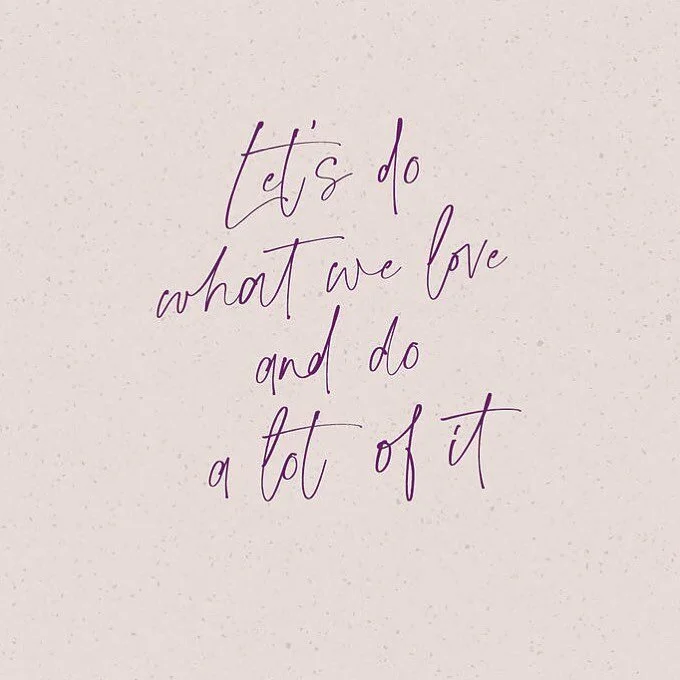 Let's do
what we love
and do
a lot of it